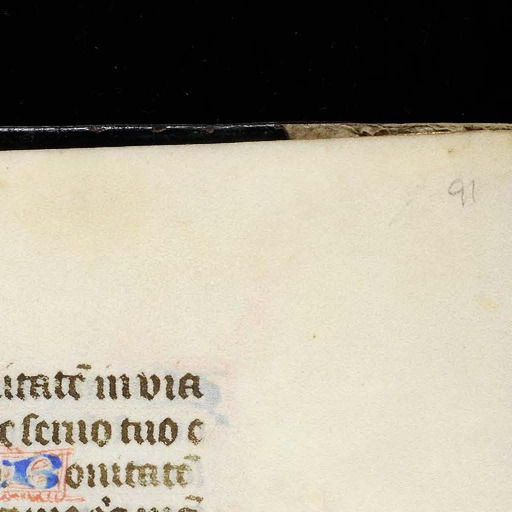 91
itatē in via
c seruo tuo c
Bonitatē